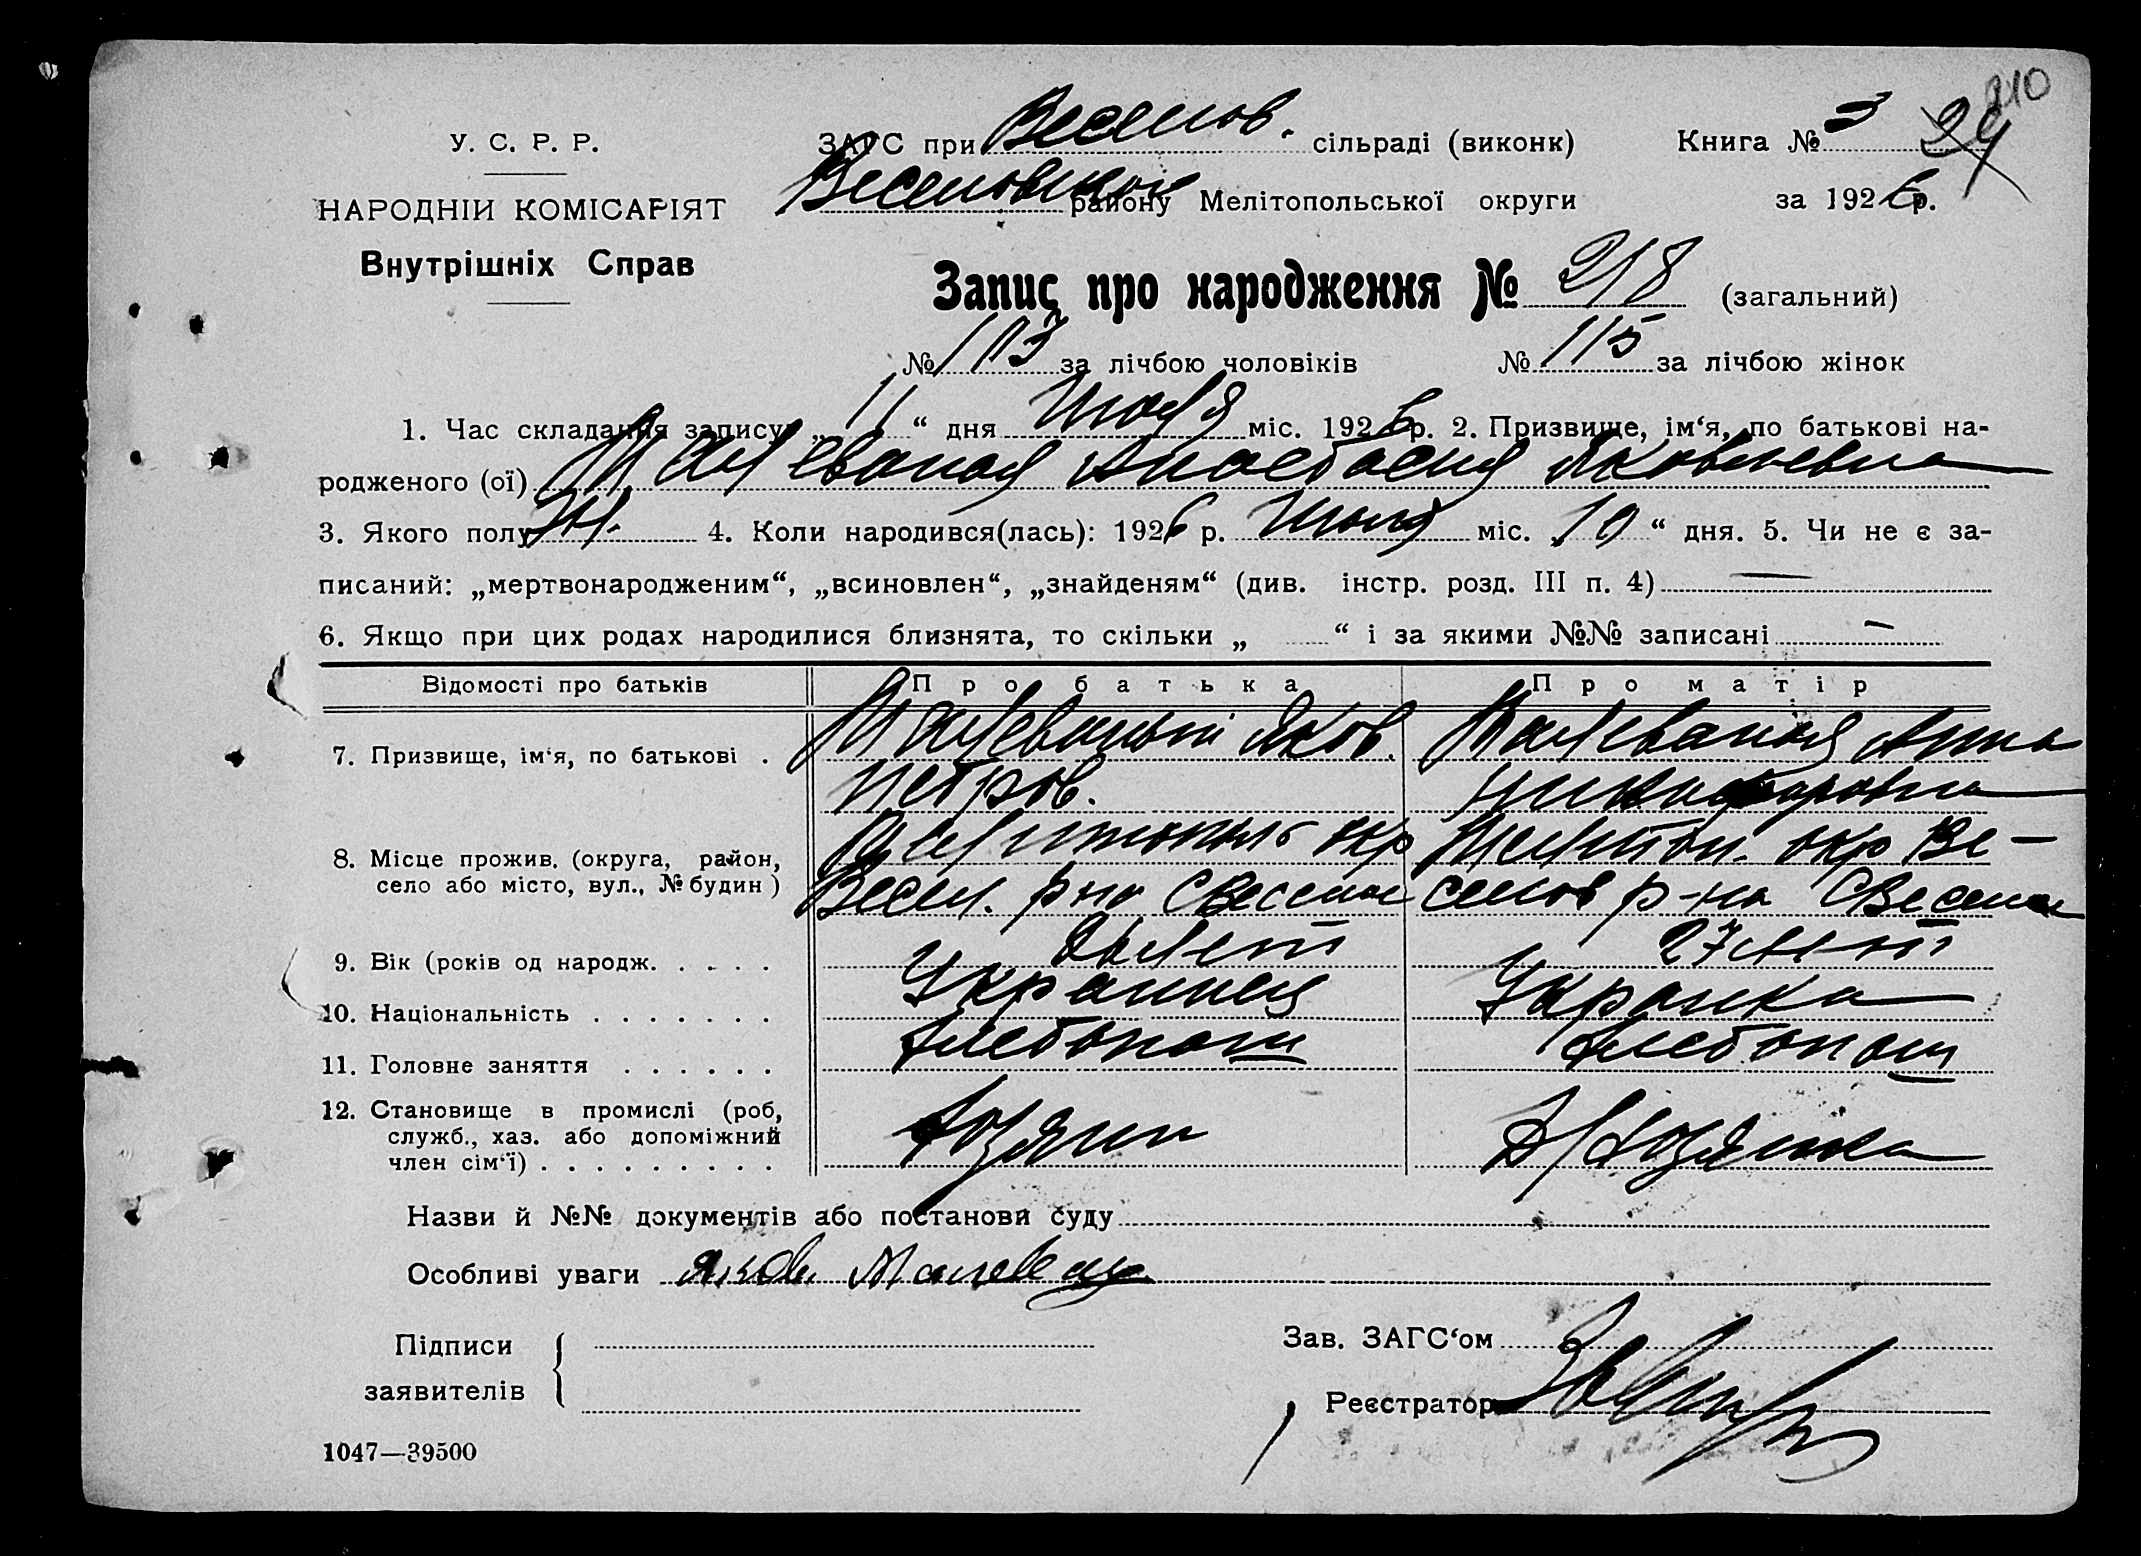 210
У. С. Р. Р.
ЗАГС при Веселов. сільраді (виконк) Книга № 3 24
НАРОДНІЙ КОМІСАРІЯТ
Веселовском району Мелітопольської округи за 1926 р.
Внутрішніх Справ
Запис про народження № 218 (загальний)
№ 103 за лічбою чоловіків № 115 за лічбою жінок
1. Час складання запису „11“ дня Июля міс. 1926 р. 2. Призвище, ім‘я, по батькові на-
родженого (ої) Малеваная Анастасия Яковлевна
3. Якого полу Ж. 4. Коли народився(лась): 1926 р. Июля міс. „10“ дня. 5. Чи не є за-
писаний: „мертвонародженим“, „всиновлен“, „знайденям“ (див. інстр. розд. III п. 4) —
6. Якщо при цих родах народилися близнята, то скільки „ “ і за якими №№ записані —
Відомості про батьків Про батька Про матір
7. Призвище, ім‘я, по батькові . Малеваный Яков. Малеваная Анна
Петров. Никифоровна
8. Місце прожив. (округа, район, Мелитополь окр Мелитоп. окр Ве-
село або місто, вул., № будин) Весел. рна С Веселое селов р-на С Веселое
9. Вік (років од народж. . . . . лет 27 лет
10. Національність . . . . . . . Украинец Украинка
11. Головне заняття . . . . . . Хлебопаш Хлебопаш
12. Становище в промислі (роб, служб., хаз. або допоміжний член сім‘ї) . . . . . . . . . Хозяин Д/Хозяйка
Назви й №№ документів або постанови суду
Особливі уваги Яков Малеван
Підписи заявителів
Зав. ЗАГС‘ом
Реєстратор
1047—39500